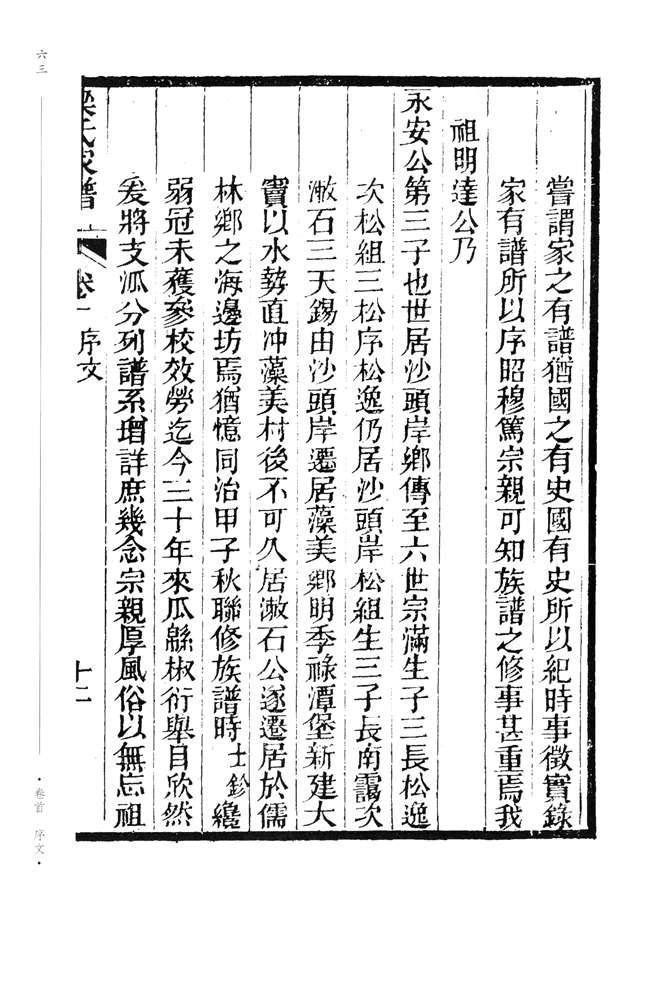 嘗謂家之有譜猶國之有史國有史所以紀時事徵實錄
家有譜所以序昭穆篤宗親可知族譜之修事甚重焉我
祖明達公乃
永安公第三子也世居沙頭岸鄉傳至六世宗滿生子三長松逸
次松組三松序松逸仍居沙頭岸松組生三子長南靄次
潄石三天錫由沙頭岸遷居藻美鄉明季祿潭堡新建大
竇以水勢直冲藻美村後不可久居潄石公遂遷居於儒
林鄉之海邊坊焉猶憶同治甲子秋聯修族譜時士鈐纔
弱冠未獲參校效勞迄今三十年來瓜緜椒衍舉目欣然
爰將支派分列譜系增詳庶幾念宗親厚風俗以無忘祖
梁氏家譜 卷一 序文 十二
六三
·卷首 序文·